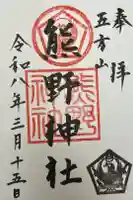 奉拝
五方山
熊野神社
令和八年三月十五日